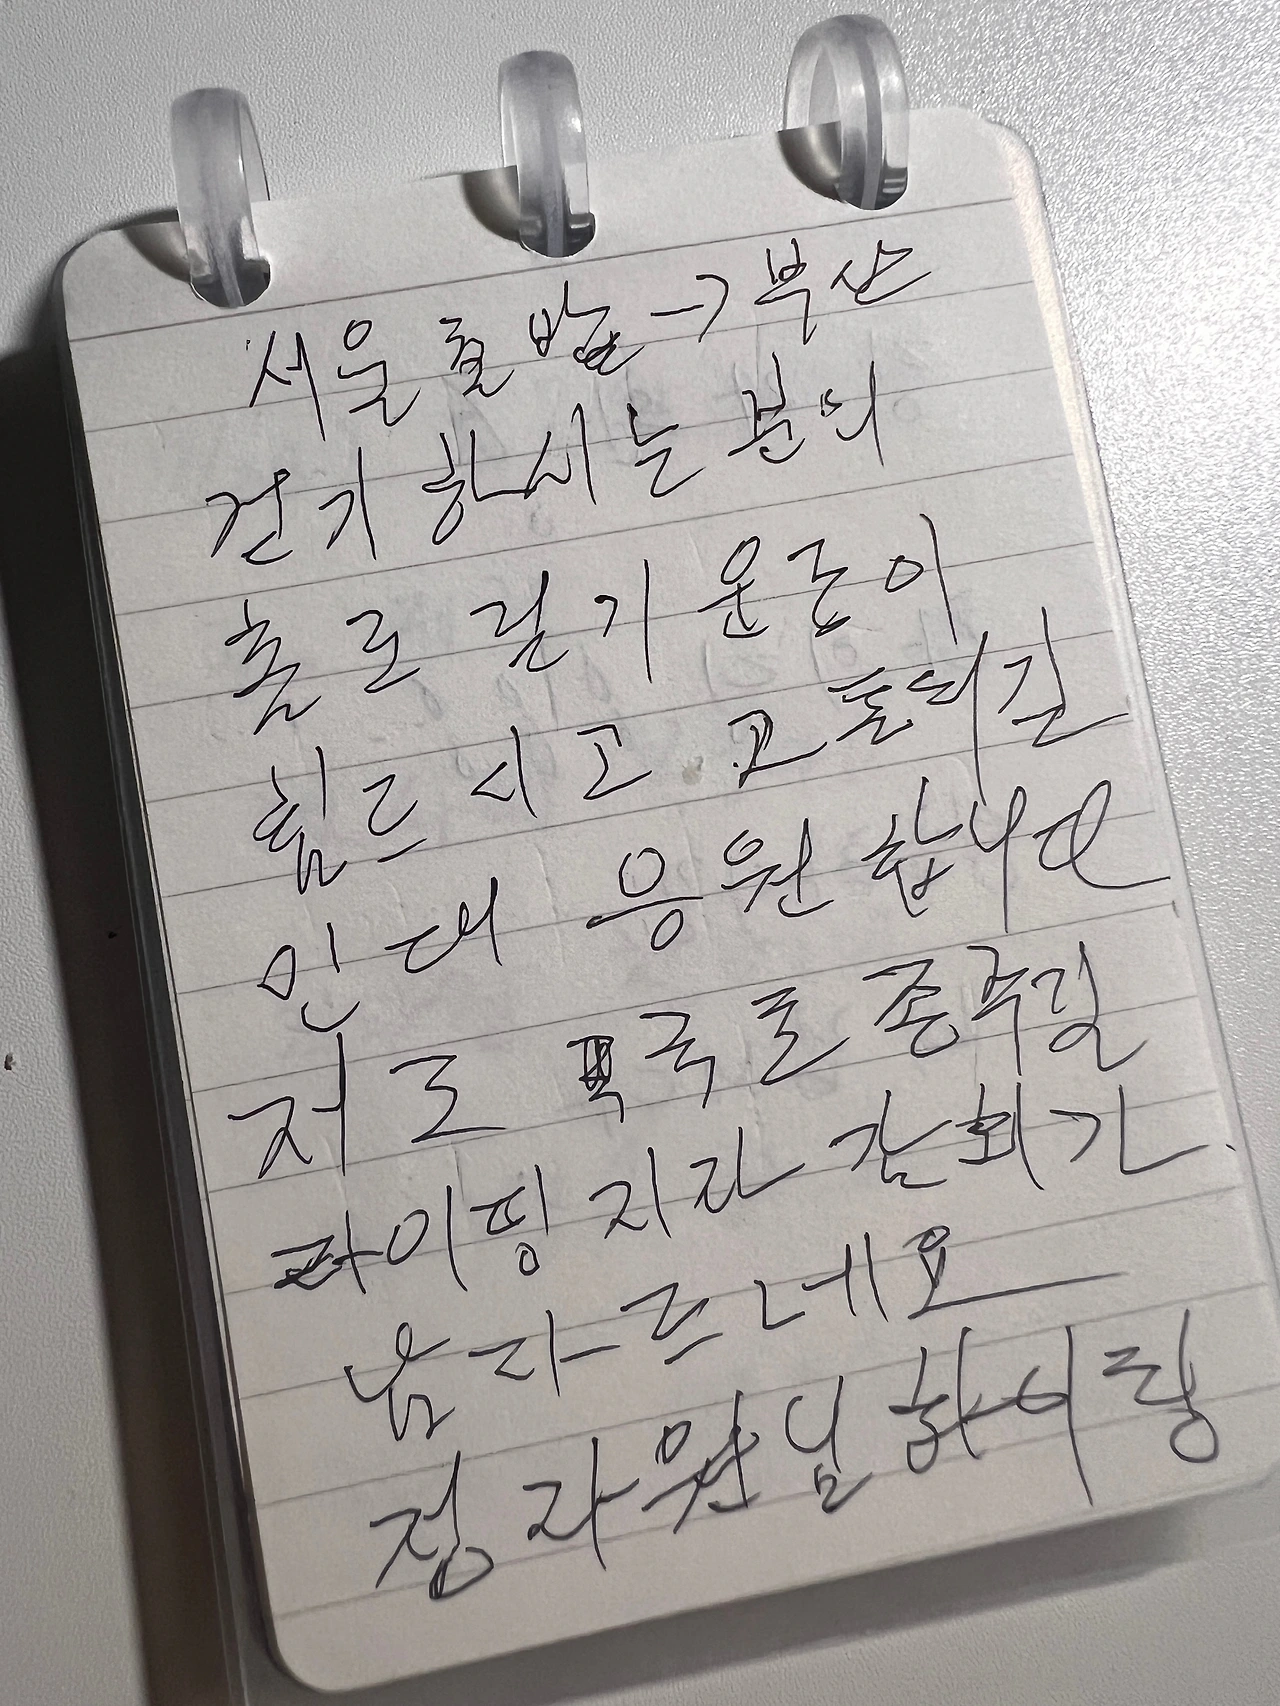 서울출발→부산
걷기하시는 분의
홀로 걷기 운동이
힘드시고 고통되진
인대 응원합니다
저도 국토종주길
라이딩지라 감회가
남다르네요
정자원님 하이팅